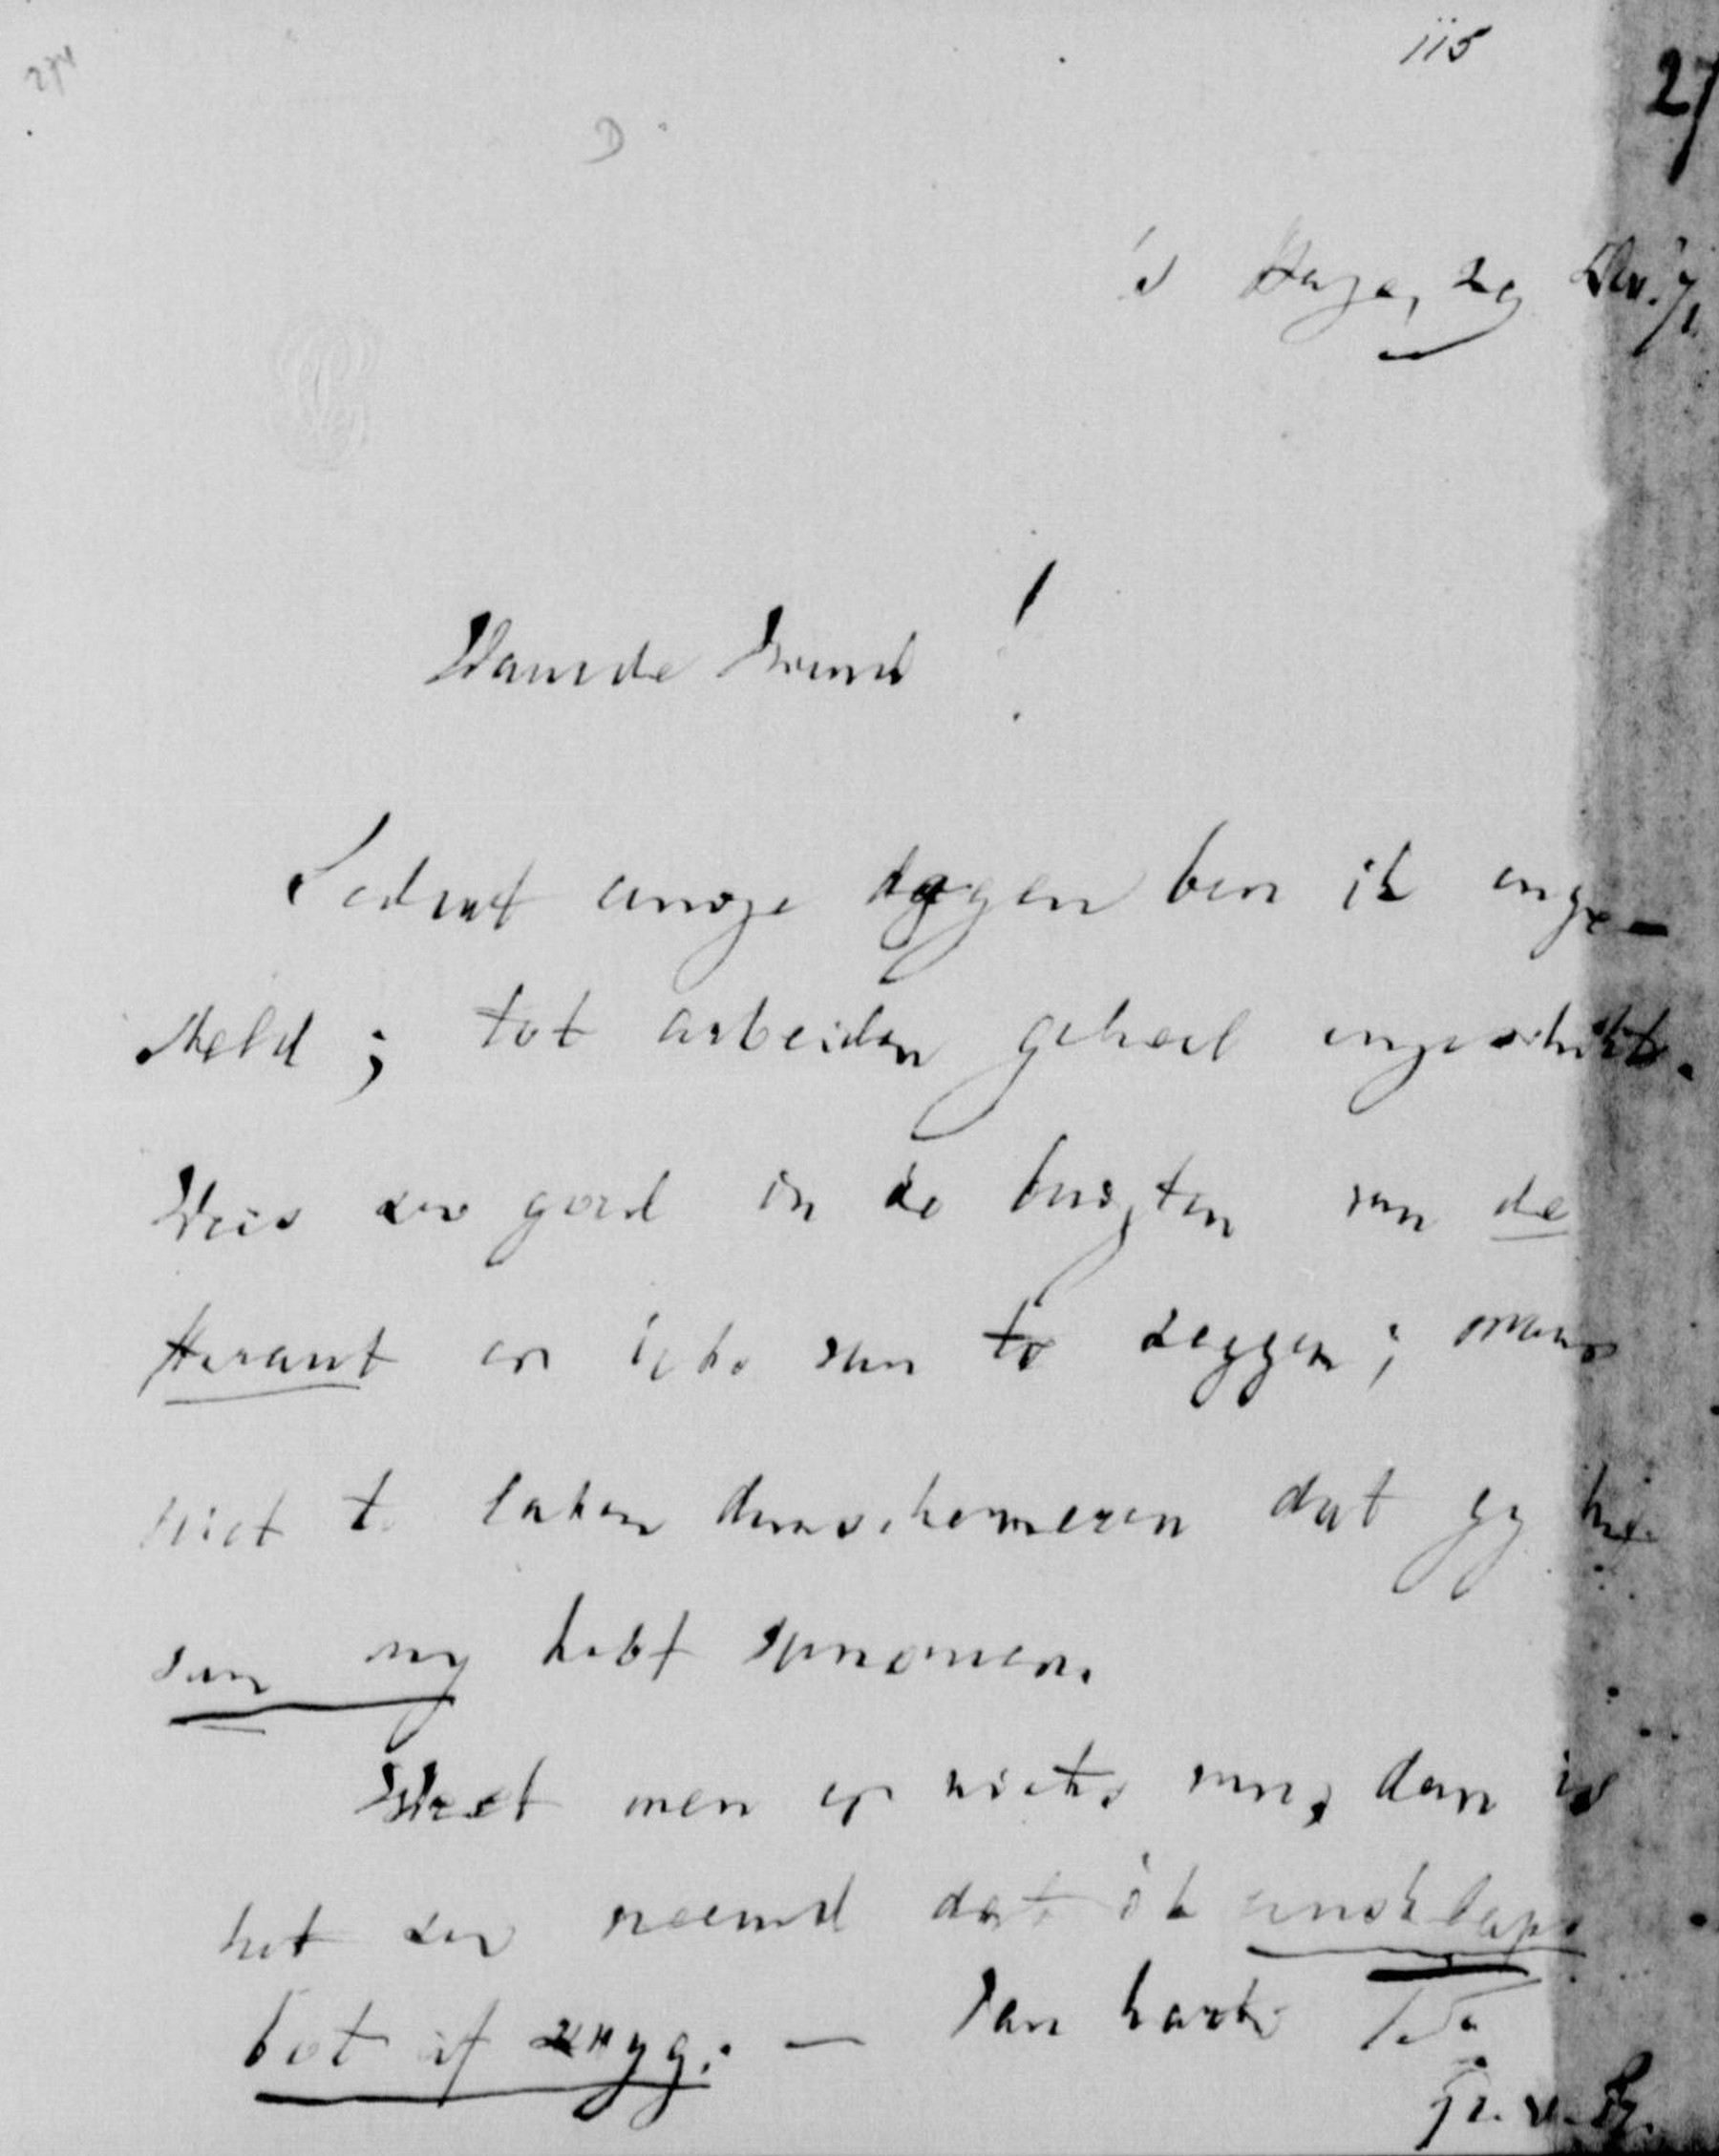 274
115
27
D.
's Hage, 29 Dec. 71.
Waarde Vriend!
Sedert eenige dagen ben ik onge-
steld; tot arbeiden geheel ongeschikt.
Wees zoo goed in de buigten van de
Heraut er iets van te zeggen; maar
niet te laten doorschemeren dat gij het
van mij hebt vernomen.
Weet men er niets van, dan is
het zoo vreemd dat ik eensklaps
bot af zwijg. — Van harte
Gr. v. Pr.